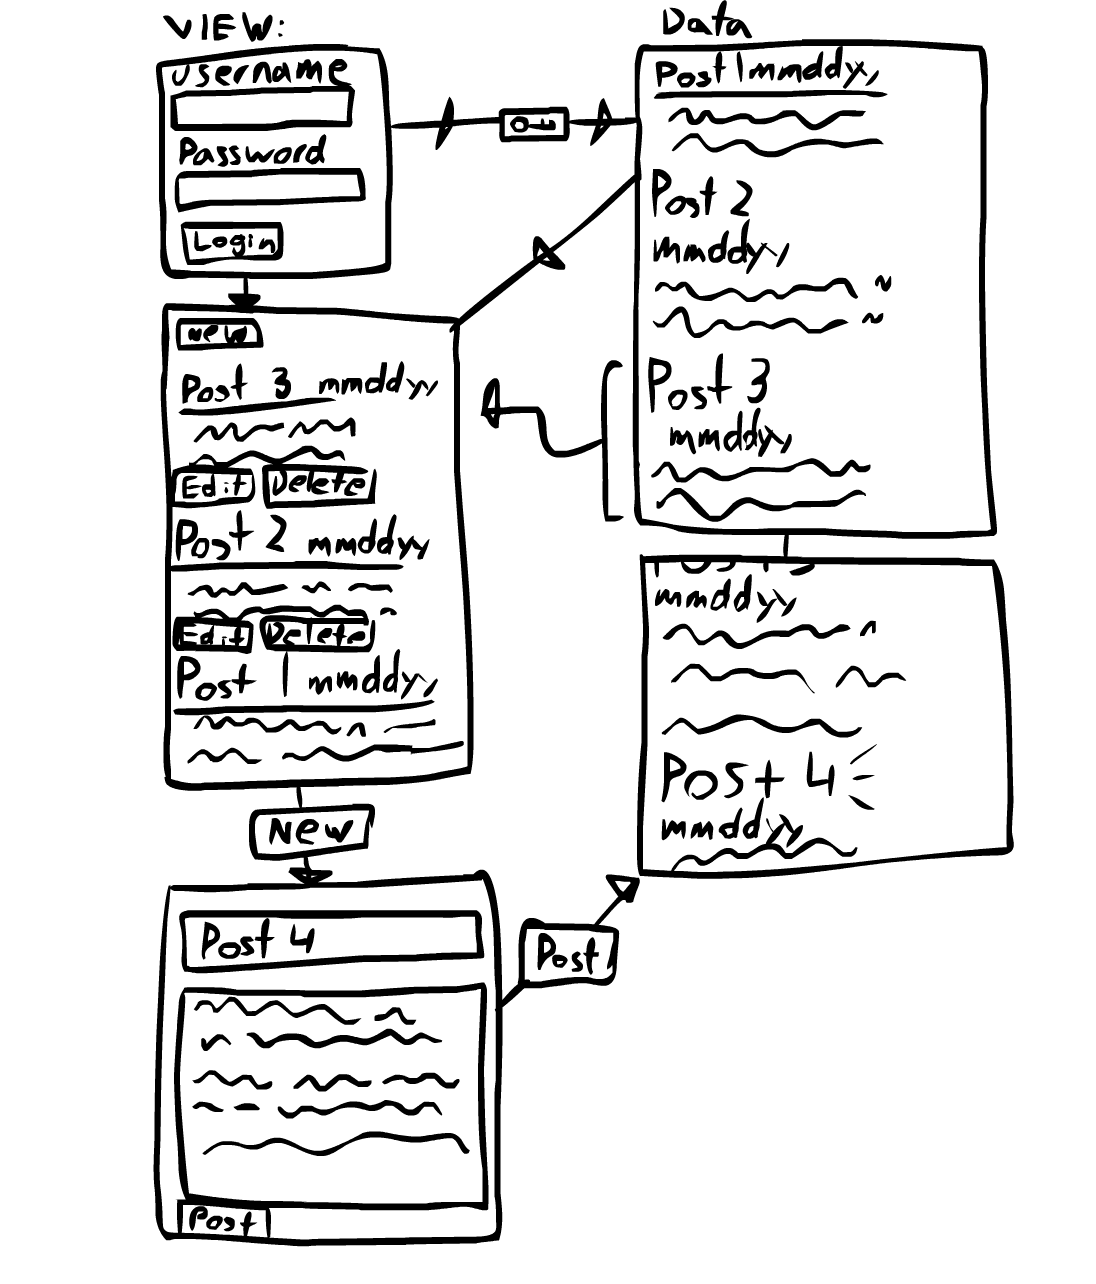 VIEW:
username
Password
Login
New
Post 3 mmddyy
Edit Delete
Post 2 mmddyy
Edit Delete
Post 1 mmddyy
New
Post 4
Post
Post
Data
Post 1 mmddyy
Post 2
mmddyy
Post 3
mmddyy
Post 3
mmddyy
Post 4
mmddyy